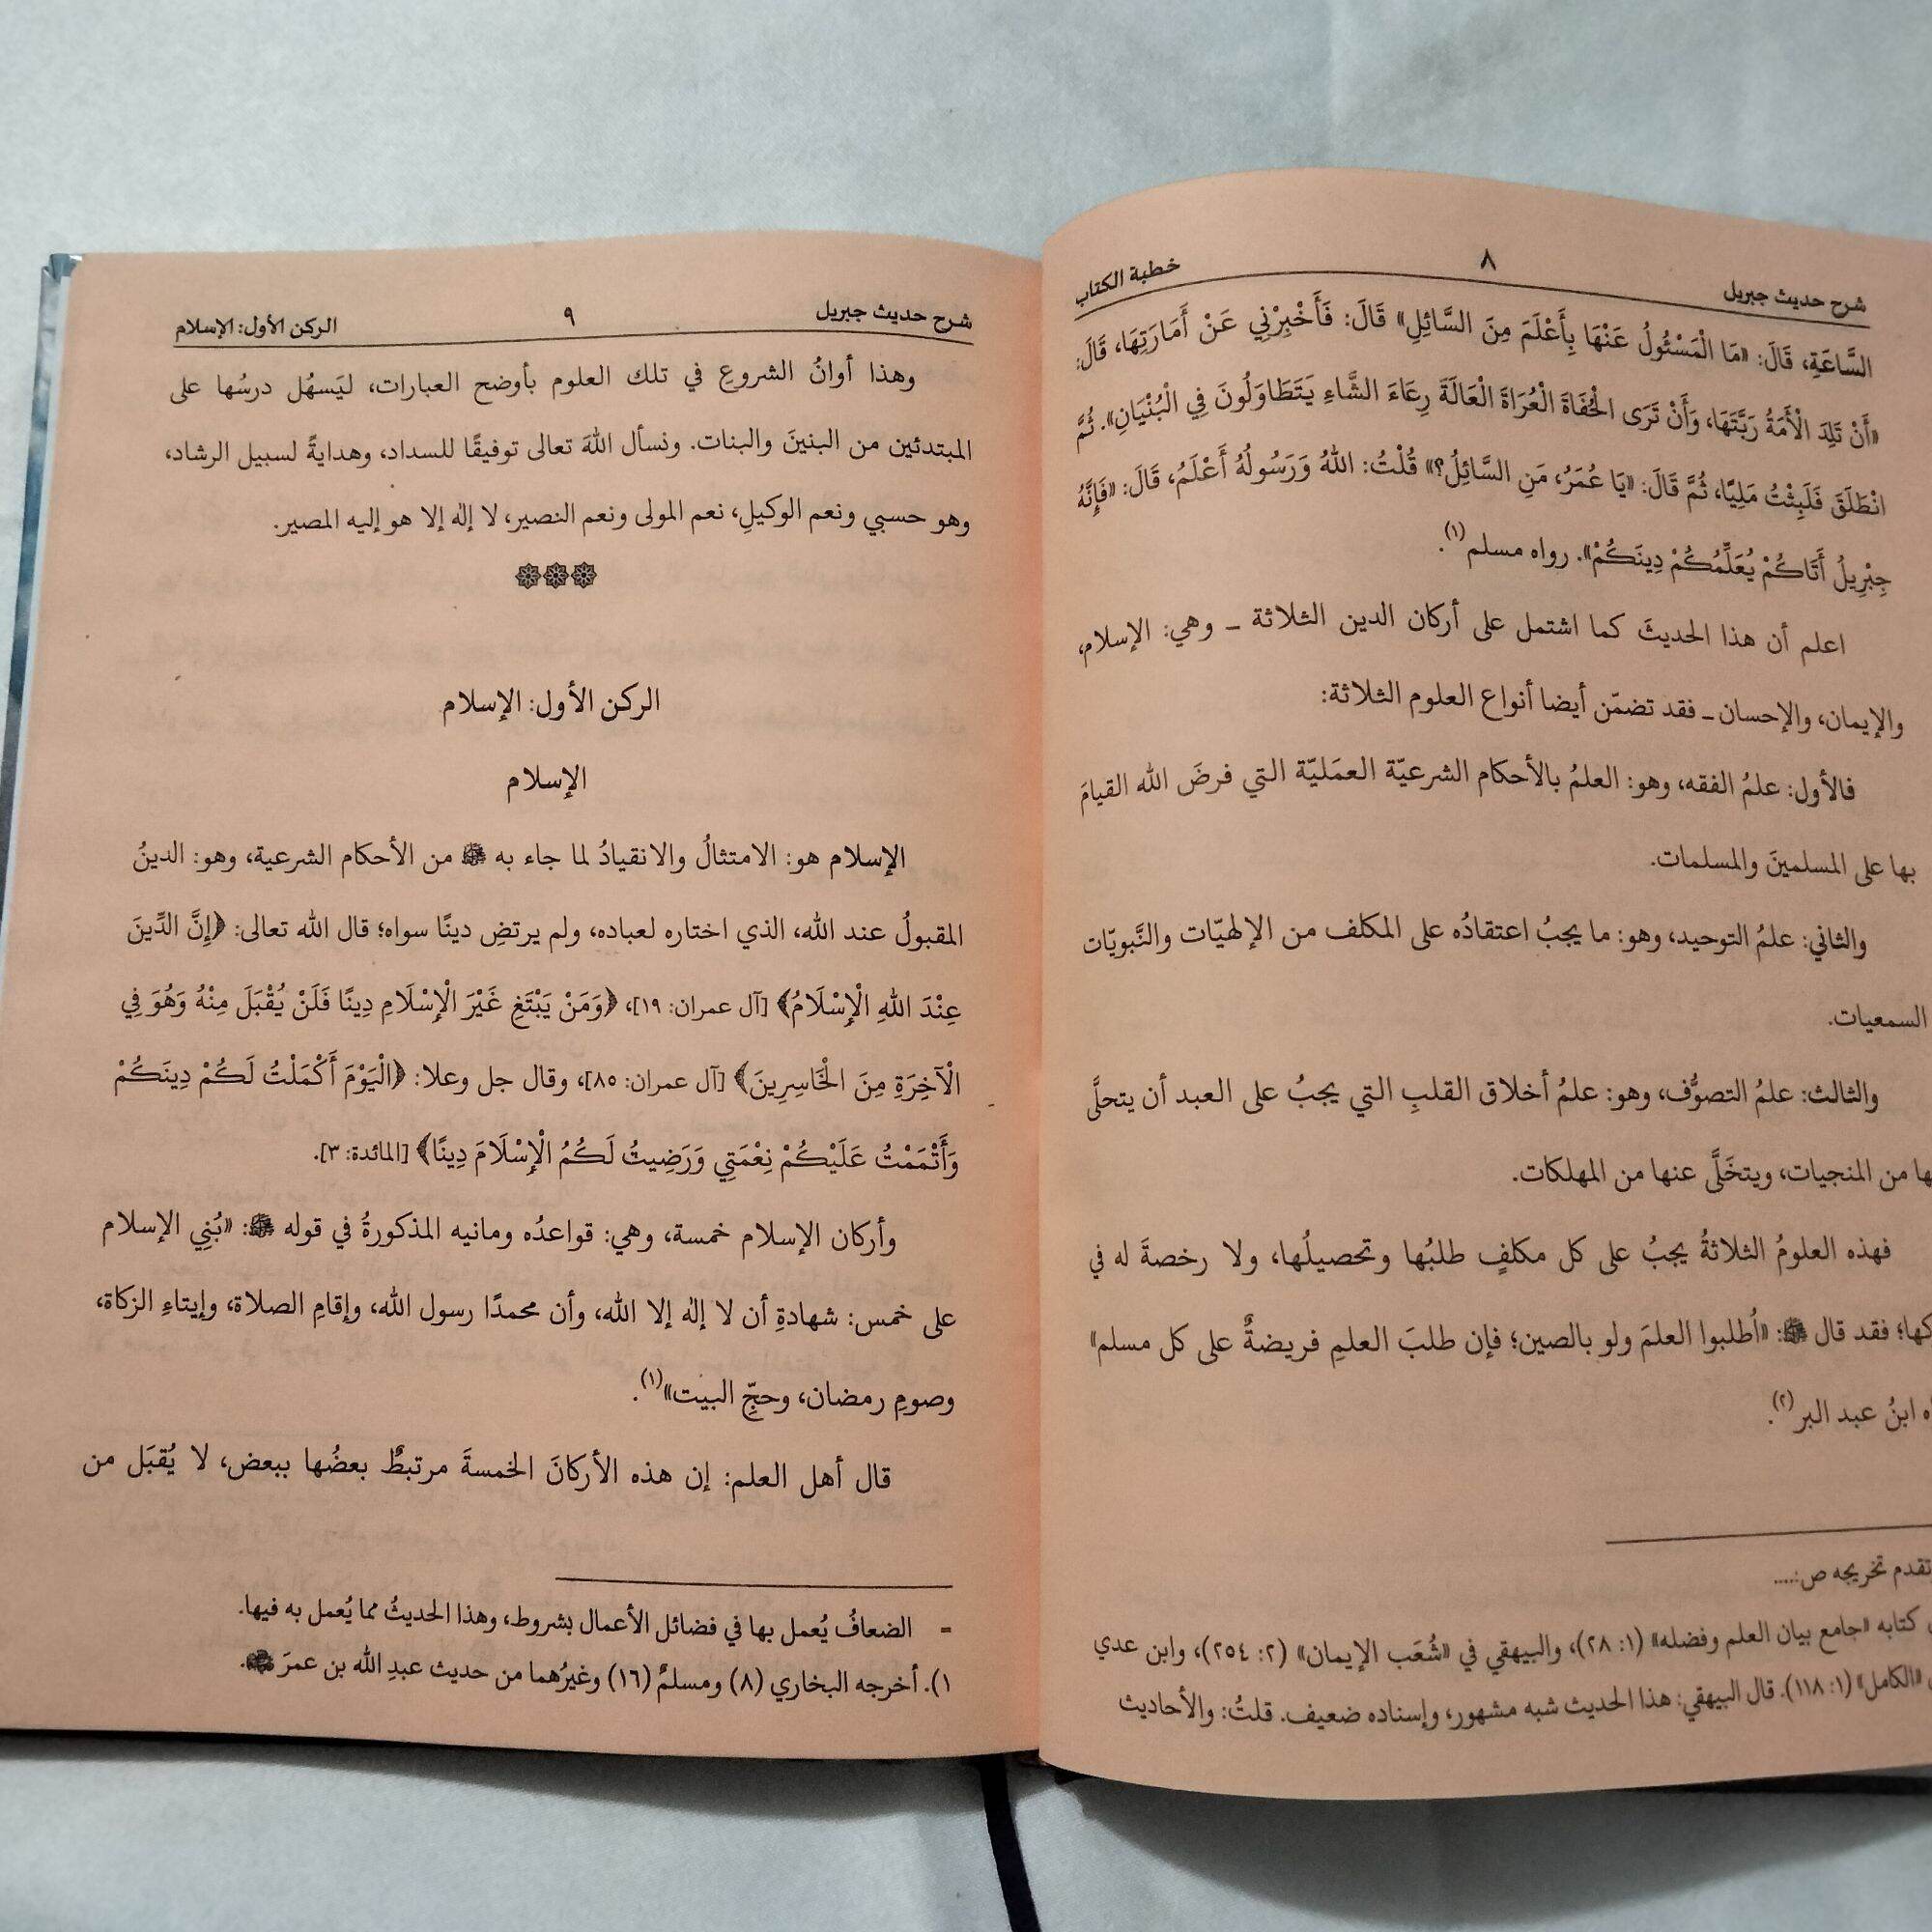 شرح حديث جبريل ٨ خطبة الكتاب
السَّاعَةِ، قَالَ: «مَا الْمَسْئُولُ عَنْهَا بِأَعْلَمَ مِنَ السَّائِلِ» قَالَ: فَأَخْبِرْنِي عَنْ أَمَارَتِهَا، قَالَ:
«أَنْ تَلِدَ الْأَمَةُ رَبَّتَهَا، وَأَنْ تَرَى الْحُفَاةَ الْعُرَاةَ الْعَالَةَ رِعَاءَ الشَّاءِ يَتَطَاوَلُونَ فِي الْبُنْيَانِ». ثُمَّ
انْطَلَقَ فَلَبِثْتُ مَلِيًّا، ثُمَّ قَالَ: «يَا عُمَرُ، مَنِ السَّائِلُ؟» قُلْتُ: اللهُ وَرَسُولُهُ أَعْلَمُ، قَالَ: «فَإِنَّهُ
جِبْرِيلُ أَتَاكُمْ يُعَلِّمُكُمْ دِينَكُمْ». رواه مسلم(١).
اعلم أن هذا الحديثَ كما اشتمل على أركان الدين الثلاثة ــ وهي: الإسلام،
والإيمان، والإحسان ــ فقد تضمّن أيضا أنواع العلوم الثلاثة:
فالأول: علمُ الفقه، وهو: العلمُ بالأحكام الشرعيّة العمَليّة التي فرضَ الله القيامَ
بها على المسلمينَ والمسلمات.
والثاني: علمُ التوحيد، وهو: ما يجبُ اعتقادُه على المكلف من الإلهيّات والنَّبويّات
السمعيات.
والثالث: علمُ التصوُّف، وهو: علمُ أخلاق القلبِ التي يجبُ على العبد أن يتحلَّى
من المنجيات، ويتخَلَّى عنها من المهلكات.
فهذه العلومُ الثلاثةُ يجبُ على كل مكلفٍ طلبُها وتحصيلُها، ولا رخصةَ له في
فقد قال ﷺ: «اُطلبوا العلمَ ولو بالصين؛ فإن طلبَ العلمِ فريضةٌ على كل مسلم»
ابنُ عبد البر(٢).
تقدم تخريجه ص:....
كتابه «جامع بيان العلم وفضله» (١: ٢٨)، والبيهقي في «شُعَب الإيمان» (٢: ٢٥٤)، وابن عدي
«الكامل» (١: ١١٨). قال البيهقي: هذا الحديث شبه مشهور، وإسناده ضعيف. قلتُ: والأحاديث
شرح حديث جبريل ٩ الركن الأول: الإسلام
وهذا أوانُ الشروعِ في تلك العلوم بأوضح العبارات، ليَسهُل درسُها على
المبتدئين من البنينَ والبنات. ونسأل اللهَ تعالى توفيقًا للسداد، وهدايةً لسبيل الرشاد،
وهو حسبي ونعم الوكيلِ، نعم المولى ونعم النصير، لا إله إلا هو إليه المصير.
الركن الأول: الإسلام
الإسلام
الإسلام هو: الامتثالُ والانقيادُ لما جاء به ﷺ من الأحكام الشرعية، وهو: الدينُ
المقبولُ عند الله، الذي اختاره لعباده، ولم يرتضِ دينًا سواه؛ قال الله تعالى: ﴿إِنَّ الدِّينَ
عِنْدَ اللهِ الْإِسْلَامُ﴾ [آل عمران: ١٩]، ﴿وَمَنْ يَبْتَغِ غَيْرَ الْإِسْلَامِ دِينًا فَلَنْ يُقْبَلَ مِنْهُ وَهُوَ فِي
الْآخِرَةِ مِنَ الْخَاسِرِينَ﴾ [آل عمران: ٨٥]، وقال جل وعلا: ﴿الْيَوْمَ أَكْمَلْتُ لَكُمْ دِينَكُمْ
وَأَتْمَمْتُ عَلَيْكُمْ نِعْمَتِي وَرَضِيتُ لَكُمُ الْإِسْلَامَ دِينًا﴾ [المائدة: ٣].
وأركان الإسلام خمسة، وهي: قواعدُه ومانيه المذكورةُ في قوله ﷺ: «بُنِي الإسلام
على خمس: شهادةِ أن لا إله إلا الله، وأن محمدًا رسول الله، وإقامِ الصلاة، وإيتاءِ الزكاة،
وصومِ رمضان، وحجِّ البيت»(١).
قال أهل العلم: إن هذه الأركانَ الخمسةَ مرتبطٌ بعضُها ببعض، لا يُقبَل من
= الضعافُ يُعمل بها في فضائل الأعمال بشروط، وهذا الحديثُ مما يُعمل به فيها.
١). أخرجه البخاري (٨) ومسلمٌ (١٦) وغيرُهما من حديث عبدِ الله بن عمرَ